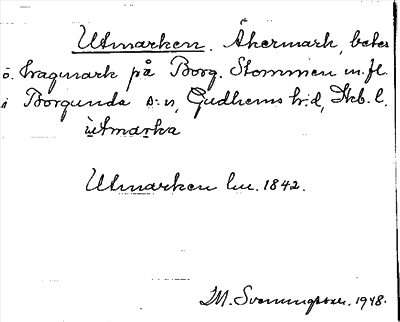 Utmarken. Åkermark, betes
o. hagmark på Borg. Stommen m.fl.
i Borgunda s:n, Gudhems h:d, Skb. l.
ùtmarka
Utmarken lm. 1842.
M. Svenningsson. 1948.